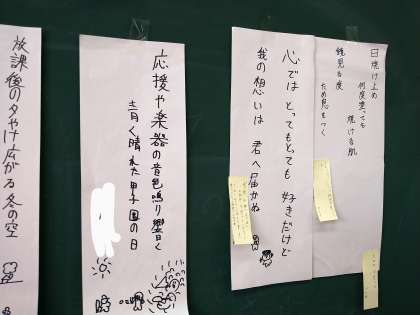 日焼け止め
何度塗っても
焼ける肌
鏡見る度
ため息をつく
心では とってもとっても 好きだけど
我の想いは 君へ届かぬ
応援や楽器の音色鳴り響く
青く晴れた甲子園の日
放課後の夕やけ広がる冬の空